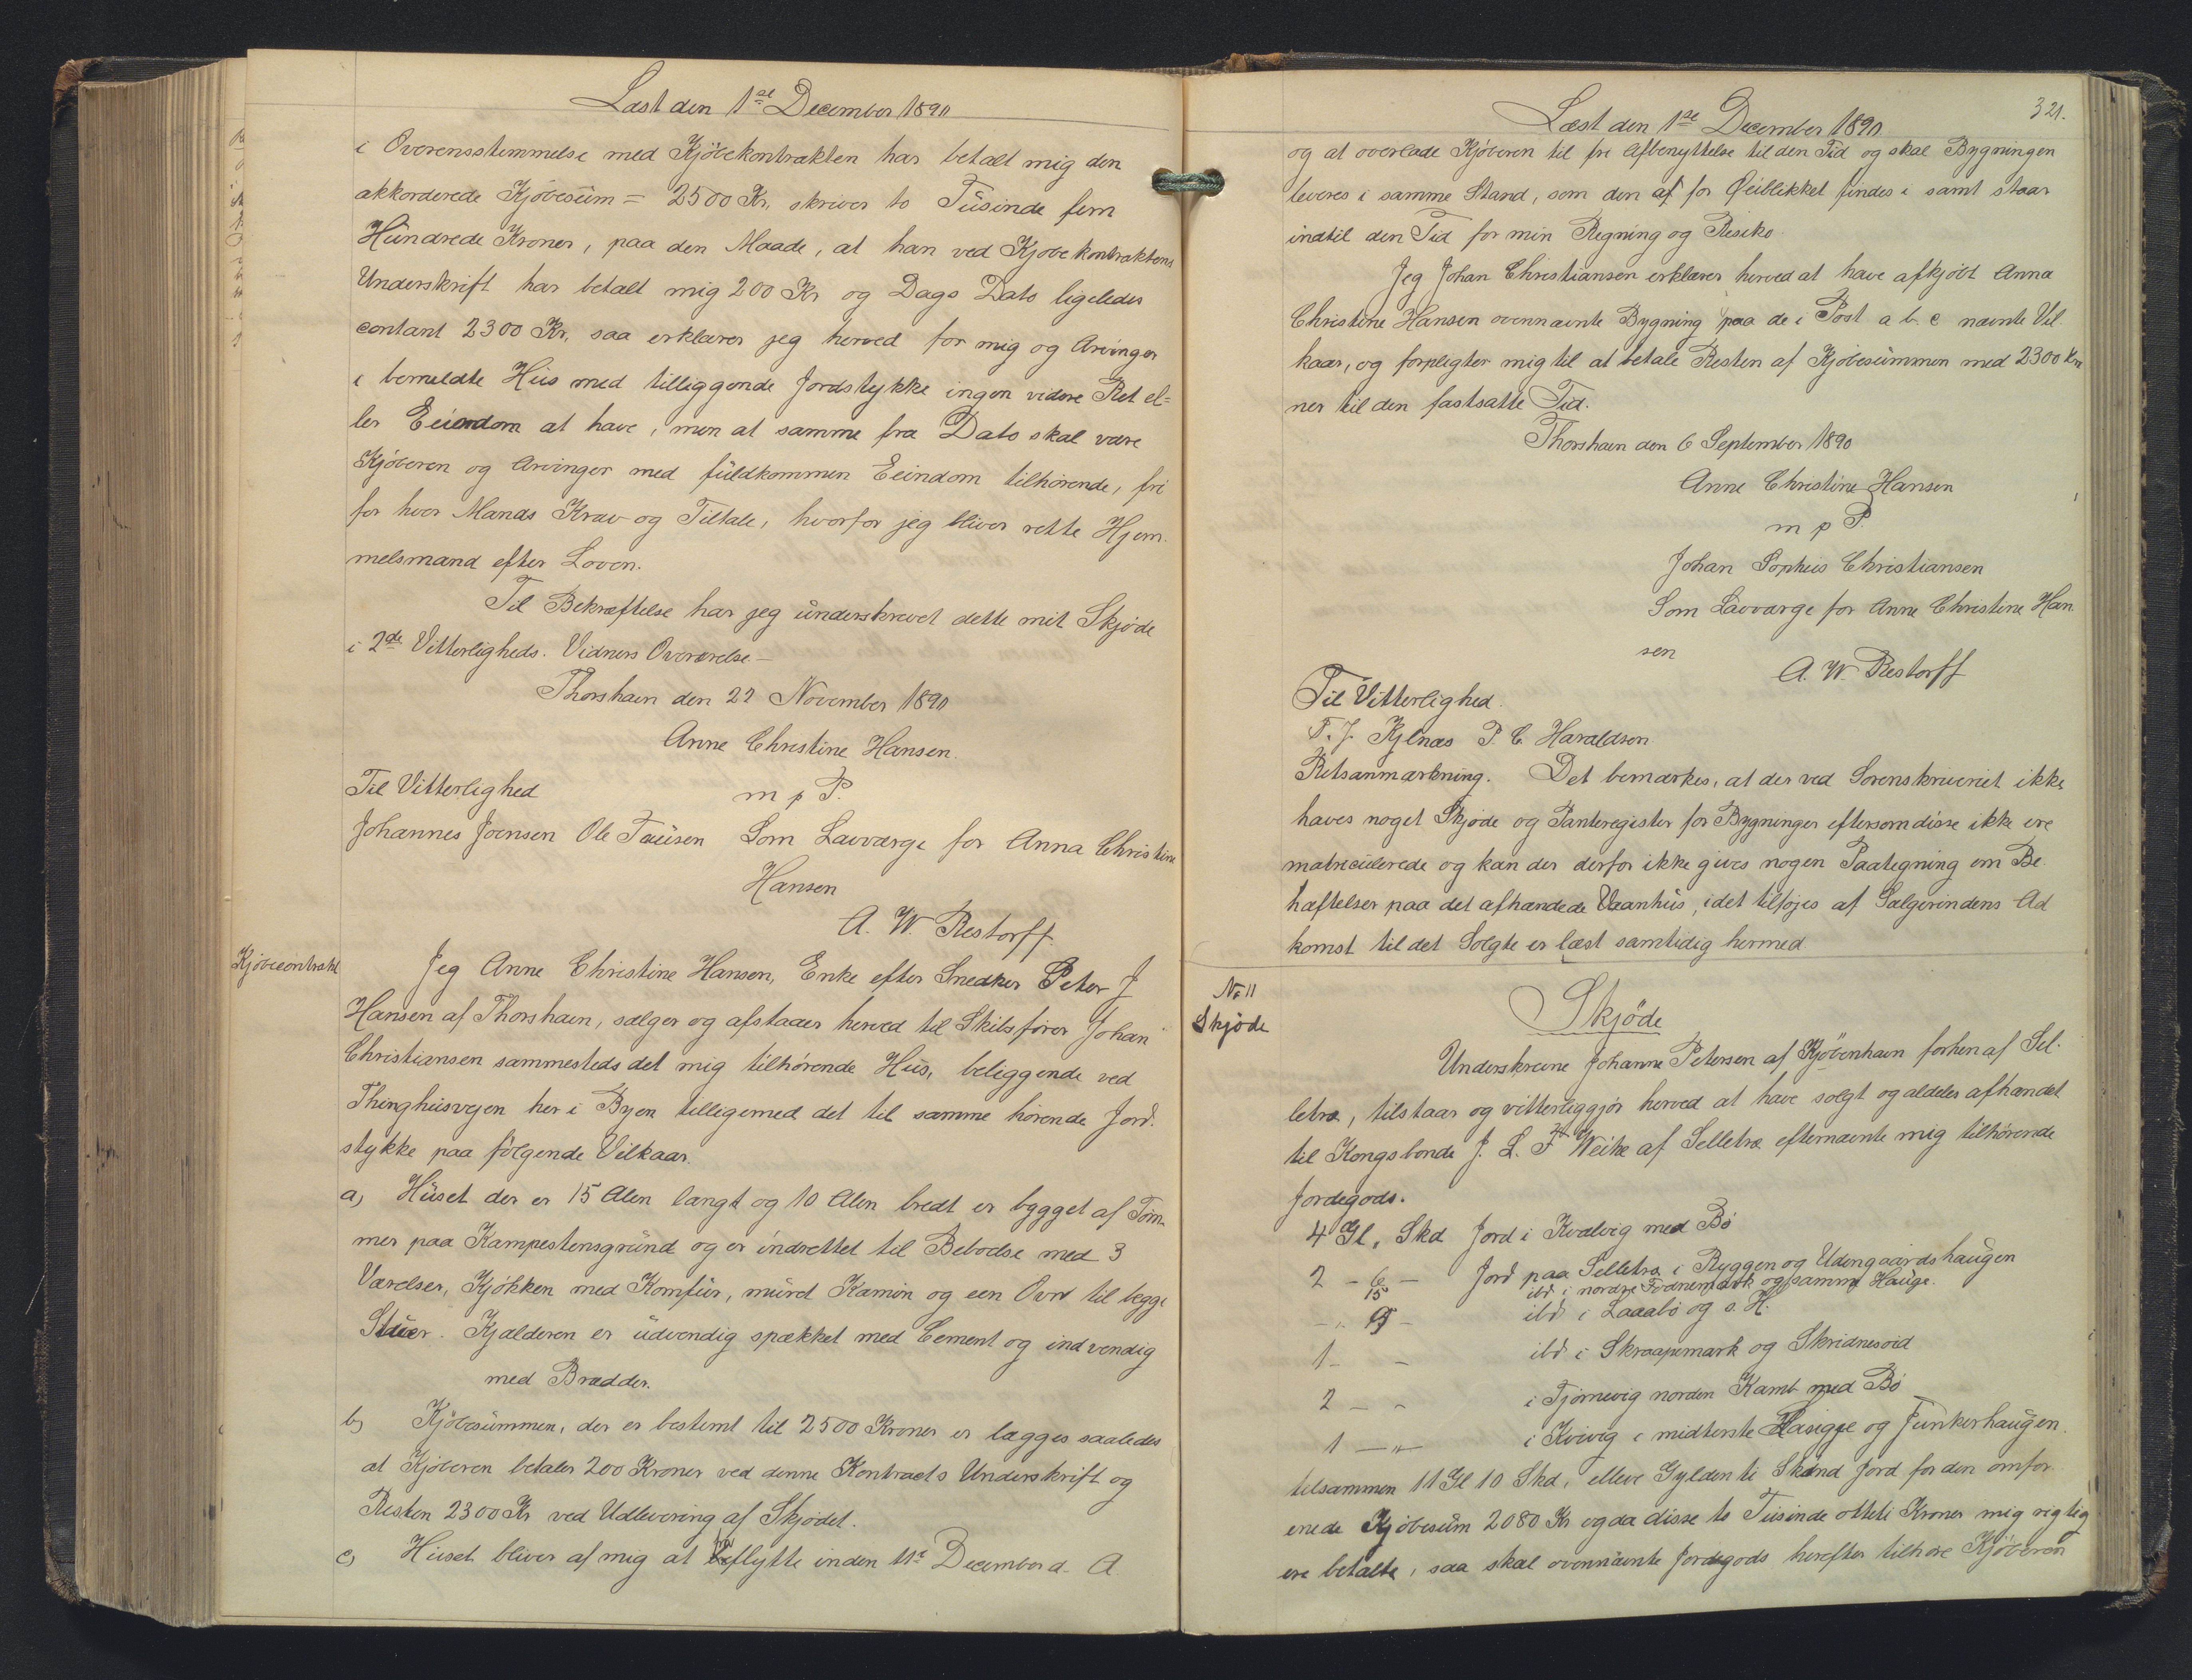 Læst den 1ste December 1890
i Overensstemmelse med Kjöbekontrakten har betalt mig den
akkorderede Kjöbesum = 2500 Kr. skriver to Tusinde fem
Hundrede Kroner, paa den Maade, at han ved Kjøbekontraktens
Underskrift har betalt mig 200 Kr og Dags Dato ligeledes
contant 2300 Kr, saa erklærer jeg herved for mig og Arvinger
i bemeldte Hus med tilliggende Jordstykke ingen videre Ret el=
ler Eiendom at have, men at samme fra Dato skal være
Kjöberen og Arvinger med fuldkommen Eiendom tilhörende, fri
for hver Mands Krav og Tiltale, hvorfor jeg bliver rette Hjem
melsmand efter Loven.
Til Bekræftelse har jeg underskrevet dette mit Skjøde
i 2de Vitterligheds. Vidners Overværelse —
Thorshavn den 22 November 1890
Anne Christine Hansen.
Til Vitterlighed m p P.
Johannes Joensen Ole Tausen Som Lavværge for Anna Christine
Hansen
A. W. Restorff.
Kjöbecontrakt
Jeg Anne Christine Hansen, Enke efter Snedker Peter J
Hansen af Thorshavn, sælger og afstaaer herved til Skibsfører Johan
Christiansen sammesteds det mig tilhörende Hus, beliggende ved
Thinghusvejen her i Byen tilligemed det til samme hörende Jord.
stykke paa fölgende Vilkaar.
a) Huset der er 15 Alen langt og 10 Alen bredt er bygget af Töm
mer paa Kampestensgrund og er indrettet til Beboelse med 3
Værelser, Kjökken med Komfur, muret Kamin og een Ovn til begge
Stuer. Kjælderen er udvendig spækket med Cement og indvendig
med Brædder.
b) Kjöbesummen, der er bestemt til 2500 Kroner er lægges saaledes
at Kjöberen betaler 200 Kroner ved denne Kontracts Underskrift og
Resten 2300 Kr ved Udlevering af Skjødet.
c) Huset bliver af mig at fraflytte inden 11te December d. A.
321.
Læst den 1ste December 1890
og at overlade Kjöberen til fri Afbenyttelse til den Tid og skal Bygningen
leveres i samme Stand, som den af for Øieblikket findes i samt staar
indtil den Tid for min Regning og Risiko.
Jeg Johan Christiansen erklærer herved at have afkjöbt Anna
Christine Hansen ovennævnte Bygning paa de i Post a b c nævnte Vil
kaar, og forpligter mig til at betale Resten af Kjöbesummen med 2300 Kro
ner til den fastsatte Tid.
Thorshavn den 6 September 1890
Anne Christine Hansen
m p P.
Johan Sophus Christiansen
Som Lavværge for Anne Christine Han
sen
A. W. Restorff
Til Vitterlighed.
F. J. Kjelnæs P. C. Haraldsen
Retsanmærkning. Det bemærkes, at der ved Sorenskriveriet ikke
haves noget Skjøde og Panteregister for Bygninger eftersom disse ikke ere
matriculerede og kan der derfor ikke gives nogen Paategning om Be
hæftelser paa det afhændede Vaanhus, idet tilföjes at Sælgerindens Ad
komst til det Solgte er læst samtidig hermed
No 11
Skjöde
Skjöde
Underskrevne Johanne Petersen af Kjöbenhavn forhen af Sel.
letræ, tilstaar og vitterliggjör herved at have solgt og aldeles afhændet
til Kongsbonde J. L. F Weihe af Selletræ efternævnte mig tilhörende
Jordegods.
4 Gl. Skd Jord i Kvalvig med Bö
2 - 6 - Jord paa Selletræ i Ryggen og Udengaardshaugen
15 ibd i nordre Fodnemark og samme Hauge.
ibd i Laaabö og s. H.
1 - - ibd i Skraapemark og Skridnesvid
2 - - i Tjörnevig norden Kamb med Bö
1 - " - i Kvivig i midterste Hasigge og Junkerhaugen.
tilsammen 11 Gl 10 Skd, elleve Gylden ti Skind Jord for den omfor
enede Kjöbesum 2080 Kr og da disse to Tusinde otteti Kroner mig rigtig
ere betalte, saa skal ovennævnte Jordegods herefter tilhøre Kjöberen